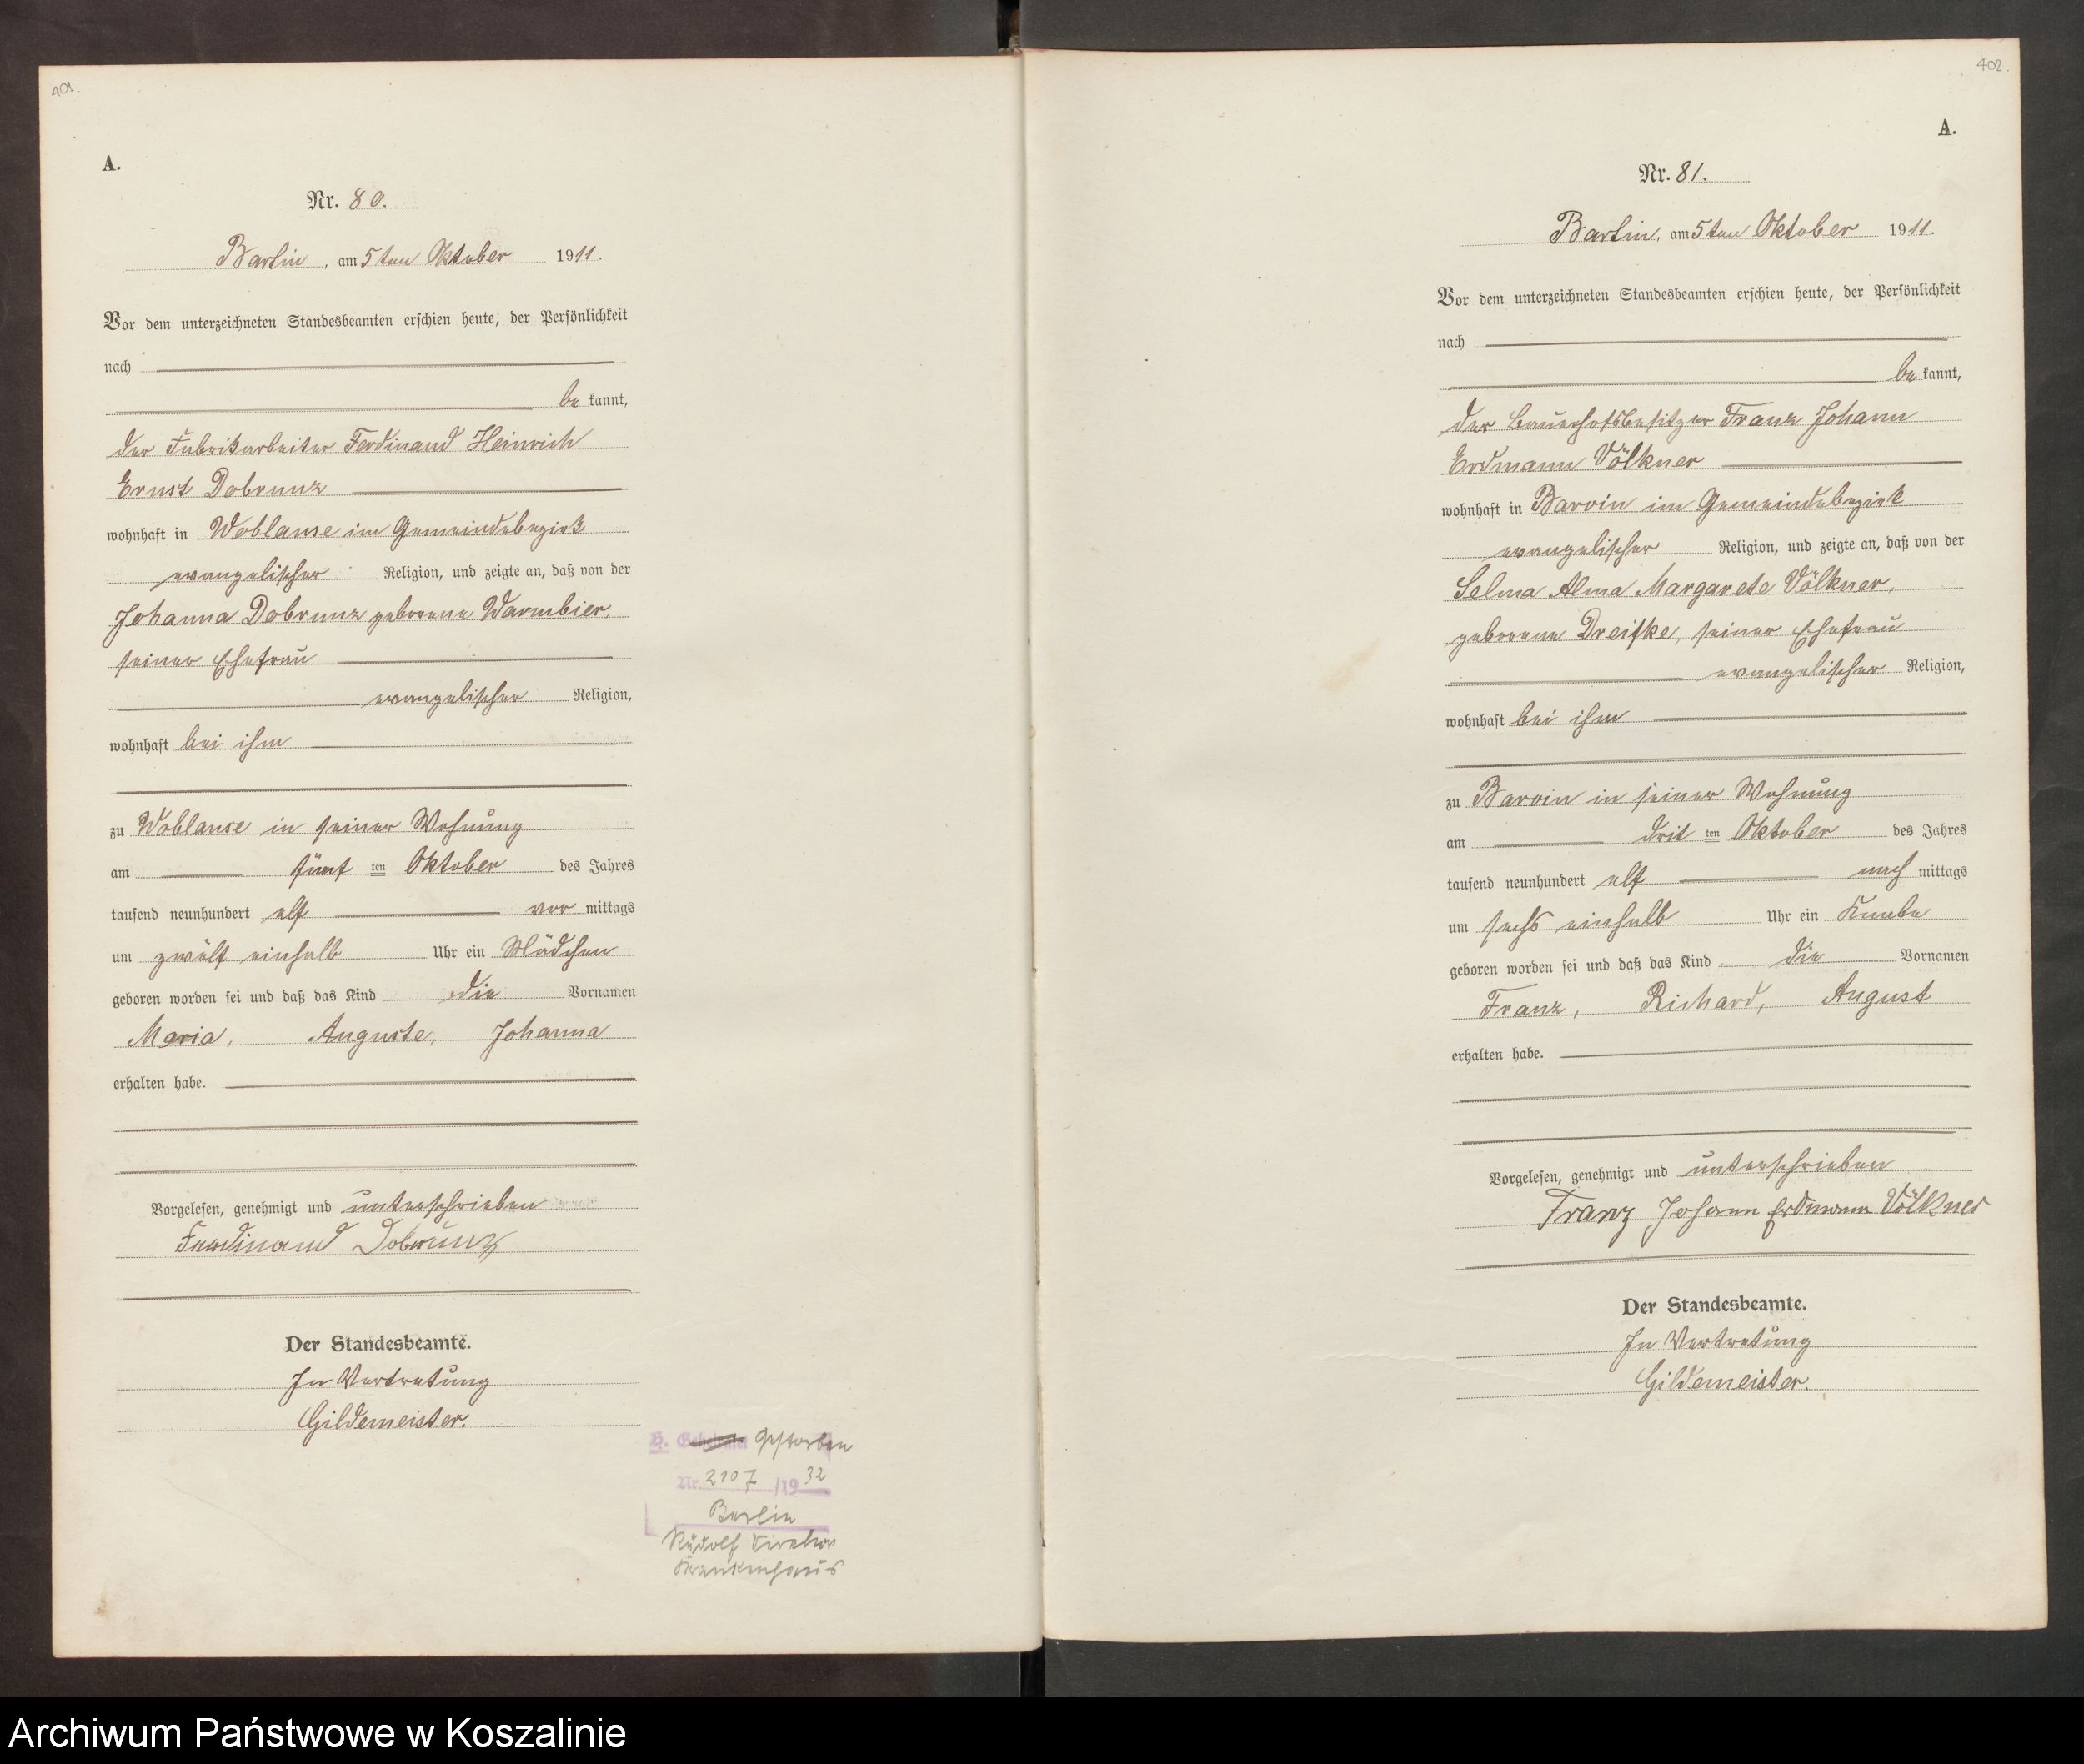 401.
A.
Nr. 80.
Bartin, am 5ten Oktober 1911.
Vor dem unterzeichneten Standesbeamten erschien heute, der Persönlichkeit
nach
be kannt,
der Fabrikarbeiter Ferdinand Heinrich
Ernst Dobrunz
wohnhaft in Woblanse im Gemeindebezirk
evangelischer Religion, und zeigte an, daß von der
Johanna Dobrunz geborene Warmbier,
seiner Ehefrau
evangelischer Religion,
wohnhaft bei ihm
zu Woblanse in seiner Wohnung
am fünf ten Oktober des Jahres
tausend neunhundert elf vor mittags
um zwölf einhalb Uhr ein Mädchen
geboren worden sei und daß das Kind die Vornamen
Maria, Auguste, Johanna
erhalten habe.
Vorgelesen, genehmigt und unterschrieben
Ferdinand Dobrunz
Der Standesbeamte.
In Vertretung
Gildemeister.
H. Gestorben
Nr. 2107 /19 32
Berlin
Rudolf Virchow
Krankenhaus
402.
A.
Nr. 81.
Bartin, am 5ten Oktober 1911.
Vor dem unterzeichneten Standesbeamten erschien heute, der Persönlichkeit
nach
be kannt,
der Bauerhofsbesitzer Franz Johann
Erdmann Völkner
wohnhaft in Barvin im Gemeindebezirk
evangelischer Religion, und zeigte an, daß von der
Selma Alma Margarete Völkner,
geborene Dreifke, seiner Ehefrau
evangelischer Religion,
wohnhaft bei ihm
zu Barvin in seiner Wohnung
am drit ten Oktober des Jahres
tausend neunhundert elf nach mittags
um sechs einhalb Uhr ein Knabe
geboren worden sei und daß das Kind die Vornamen
Franz, Richard, August
erhalten habe.
Vorgelesen, genehmigt und unterschrieben
Franz Johann Erdmann Völkner
Der Standesbeamte.
In Vertretung
Gildemeister.
Archiwum Państwowe w Koszalinie